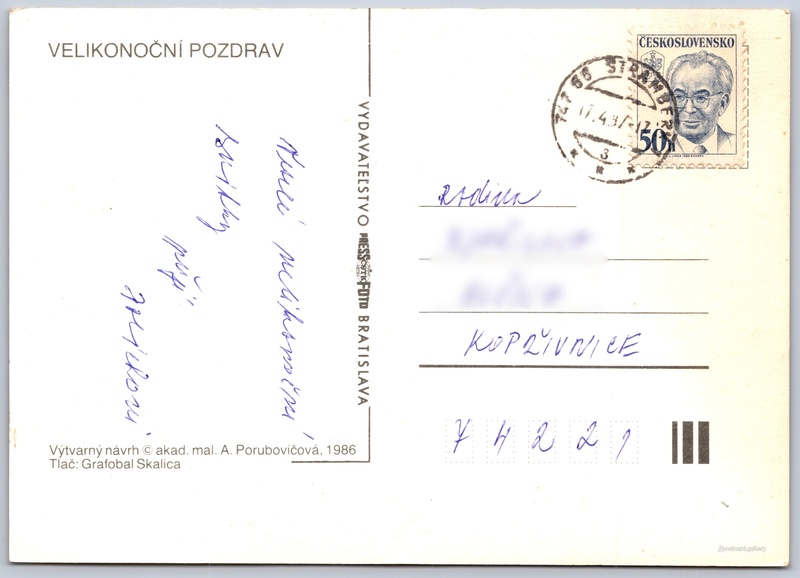 VELIKONOČNÍ POZDRAV
Veselé velikonoční
svátky
přejí
Výtvarný návrh © akad. mal. A. Porubovičová, 1986
Tlač: Grafobal Skalica
VYDAVATEĽSTVO PRESSFOTO BRATISLAVA
ČESKOSLOVENSKO
50h
742 66 ŠTRAMBERK
3
rodina
KOPŘIVNICE
74221